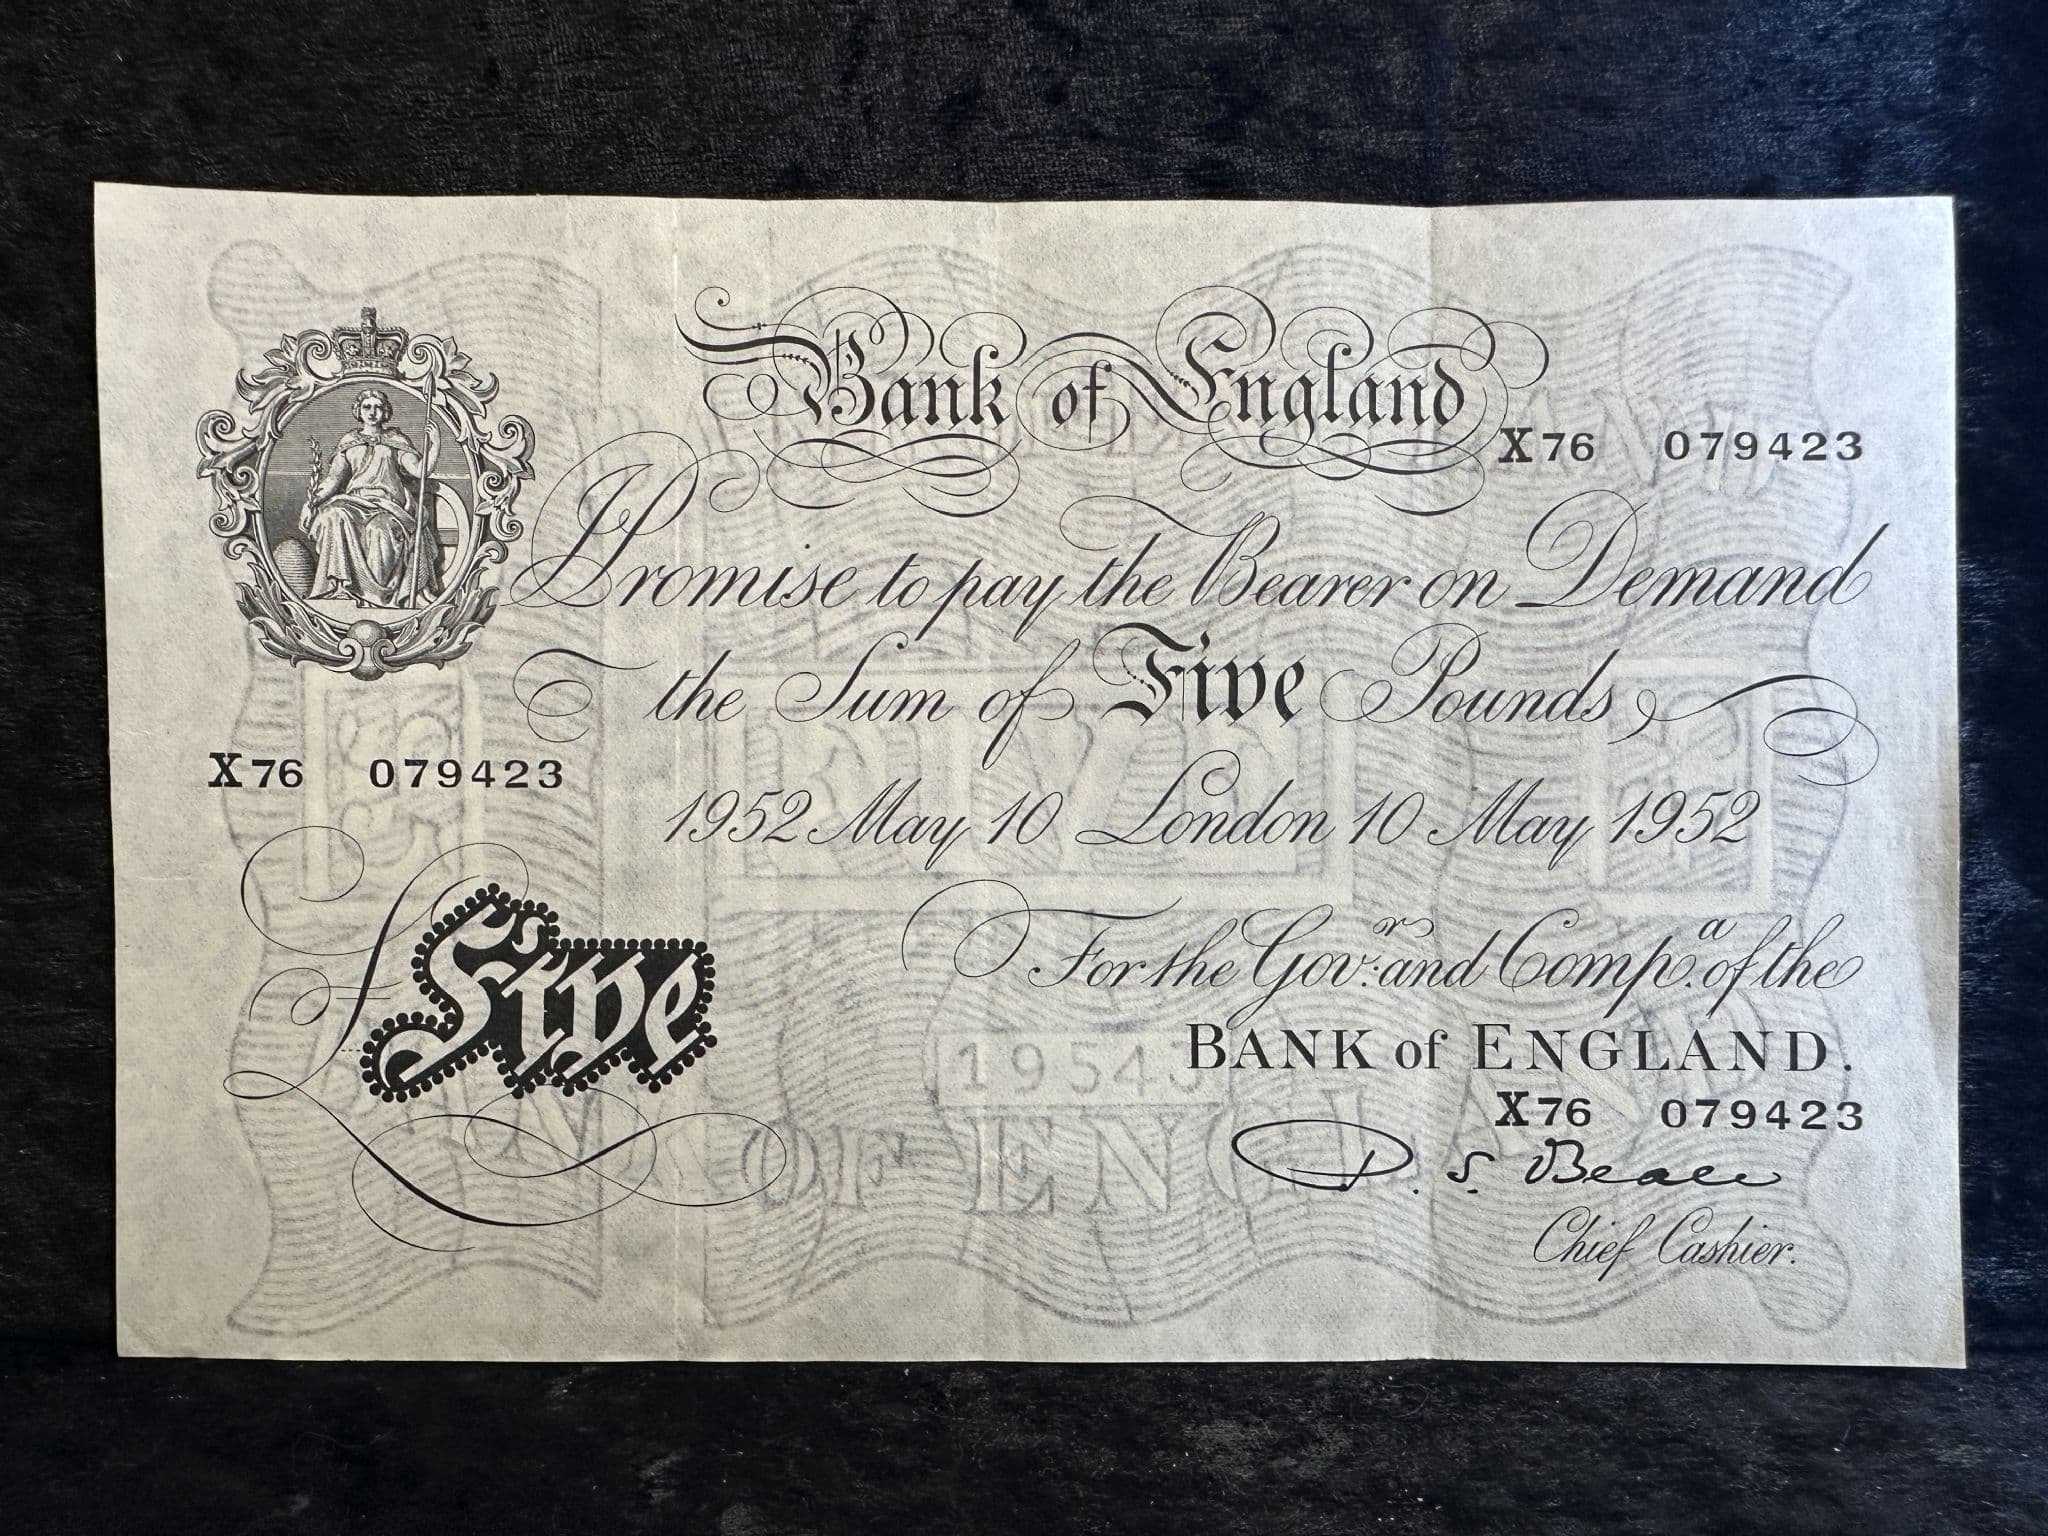 Bank of England
X76 079423
I Promise to pay the Bearer on Demand
the Sum of Five Pounds
X76 079423
1952 May 10 London 10 May 1952
£ Five
For the Gov.r and Comp.a of the
BANK of ENGLAND.
X76 079423
P. S. Beale
Chief Cashier.
BANK OF ENGLAND
£5 FIVE £5
BANK OF ENGLAND